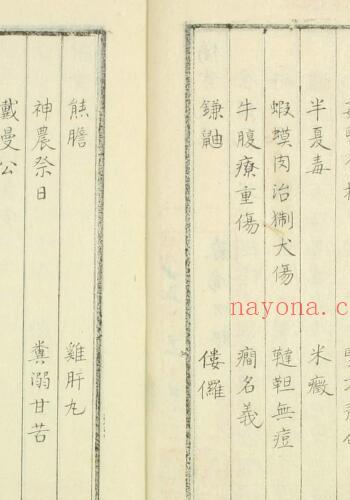 半夏毒 米癥
蝦蟆肉治猘犬傷 韃靼無痘
牛腹療重傷 癇名義
鎌鼬 僂儸
熊膽 雞肝丸
神農祭日 糞溺甘苦
戴曼公
nayona.cn